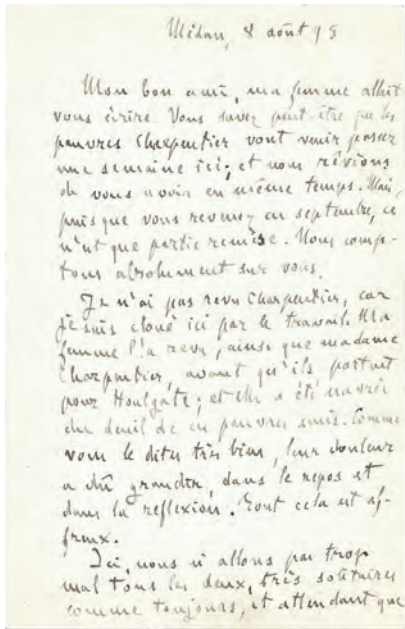 Médan, 8 août 95
Mon bon ami, ma femme allait
vous écrire. Vous savez peut-être que les
pauvres Charpentier vont venir passer
une semaine ici; et nous rêvions
de vous avoir en même temps. Mais,
puisque vous revenez en septembre, ce
n'est que partie remise. Nous comp-
tons absolument sur vous.
Je n'ai pas revu Charpentier, car
je suis cloué ici par le travail. Ma
femme l'a revu, ainsi que madame
Charpentier, avant qu'ils partent
pour Houlgate; et elle a été navrée
du deuil de ces pauvres amis. Comme
vous le dites très bien, leur douleur
a dû grandir, dans le repos et
dans la réflexion. Tout cela est af-
freux.
Ici, nous n'allons pas trop
mal tous les deux, très solitaires
comme toujours, et attendant que